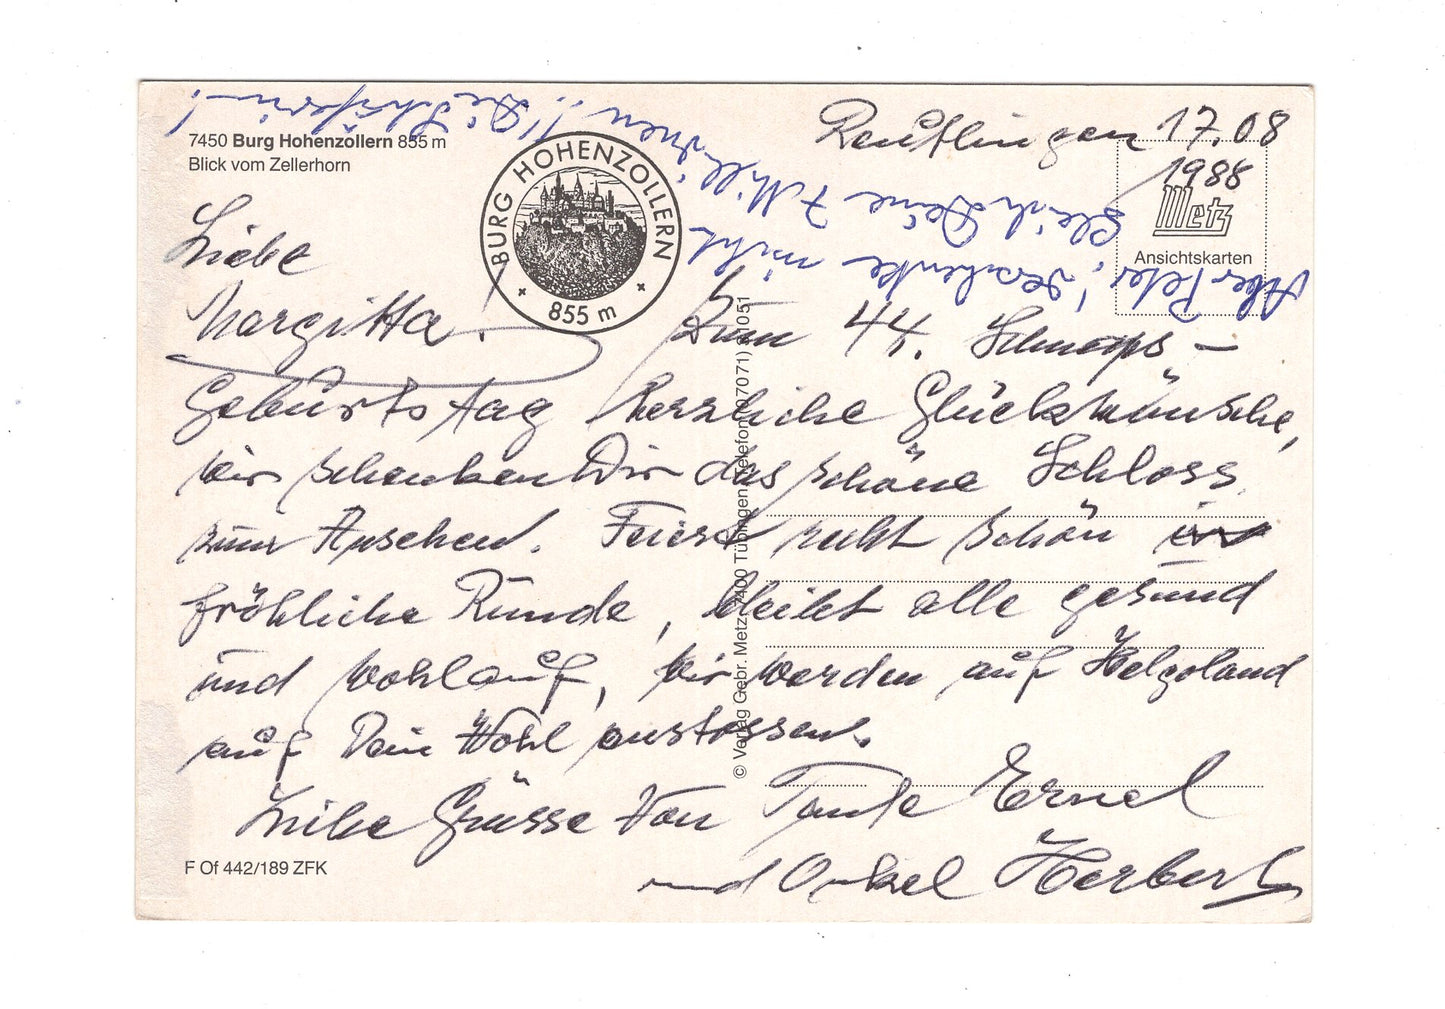 7450 Burg Hohenzollern 855 m
Blick vom Zellerhorn
BURG HOHENZOLLERN
855 m
Reutlingen 17.08
1988
Metz
Ansichtskarten
Aber Peter! verschenke nicht
gleich Deine 7 Millionen!! Die Schäferin!
Liebe
Margitta!
Zum 44. Schnaps –
Geburtstag herzliche Glückwünsche,
wir schenken Dir das schöne Schloss
zum Ansehen. Feiert recht schön in
fröhliche Runde, bleibt alle gesund
und wohlauf, wir werden auf Helgoland
auf Dein Wohl anstossen.
Liebe Grüsse von Tante Ernel
und Onkel Herbert
© Verlag Gebr. Metz 7400 Tübingen Telefon (07071) 81051
F Of 442/189 ZFK